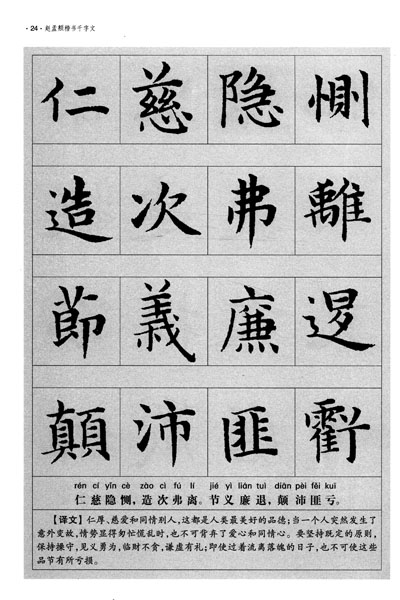 · 24 · 赵孟頫楷书千字文
仁慈隐惻
造次弗離
節義廉退
顛沛匪虧
rén cí yǐn cè zào cì fú lí jié yì lián tuì diān pèi fěi kuī
仁慈隐恻，造次弗离。节义廉退，颠沛匪亏。
【译文】仁厚、慈爱和同情别人，这都是人类最美好的品德；当一个人突然发生了
意外变故，情势显得匆忙慌乱时，也不可背弃了爱心和同情心。要坚持既定的原则，
保持操守，见义勇为，临财不贪，谦虚有礼；即使过着流离落魄的日子，也不可使这些
品节有所亏损。